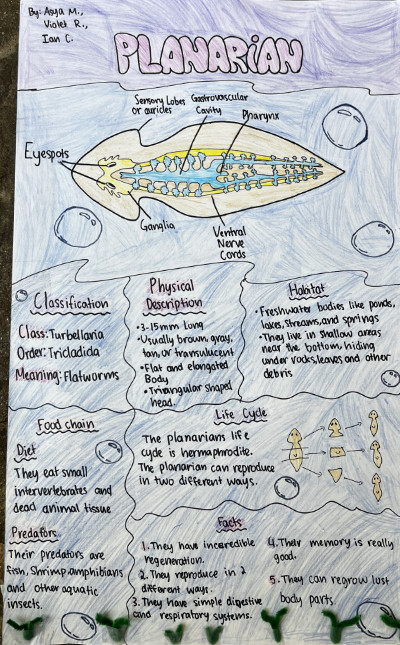 By: Asya M.,
Violet R.,
Ian C.
PLANARIAN
Sensory Lobes
or auricles
Gastrovascular
Cavity
Pharynx
Eyespots
Ganglia
Ventral
Nerve
Cords
Classification
Class: Turbellaria
Order: Tricladida
Meaning: Flatworms
Physical
Description
•3-15mm long
•Usually brown, gray,
tan, or translucent
•Flat and elongated
Body
•Triangular shaped
head.
Habitat
•Freshwater bodies like ponds,
lakes, streams, and springs
•They live in shallow areas
near the bottom, hiding
under rocks, leaves and other
debris
Food chain
Diet
They eat small
intervertebrates and
dead animal tissue
Predators
Their predators are
fish, Shrimp, amphibians
and other aquatic
insects.
Life Cycle
The planarians life
cycle is hermaphrodite.
The planarian can reproduce
in two different ways.
Facts
1. They have incredible
regeneration.
2. They reproduce in 2
different ways.
3. They have simple digestive
and respiratory systems.
4. Their memory is really
good.
5. They can regrow lost
body parts.